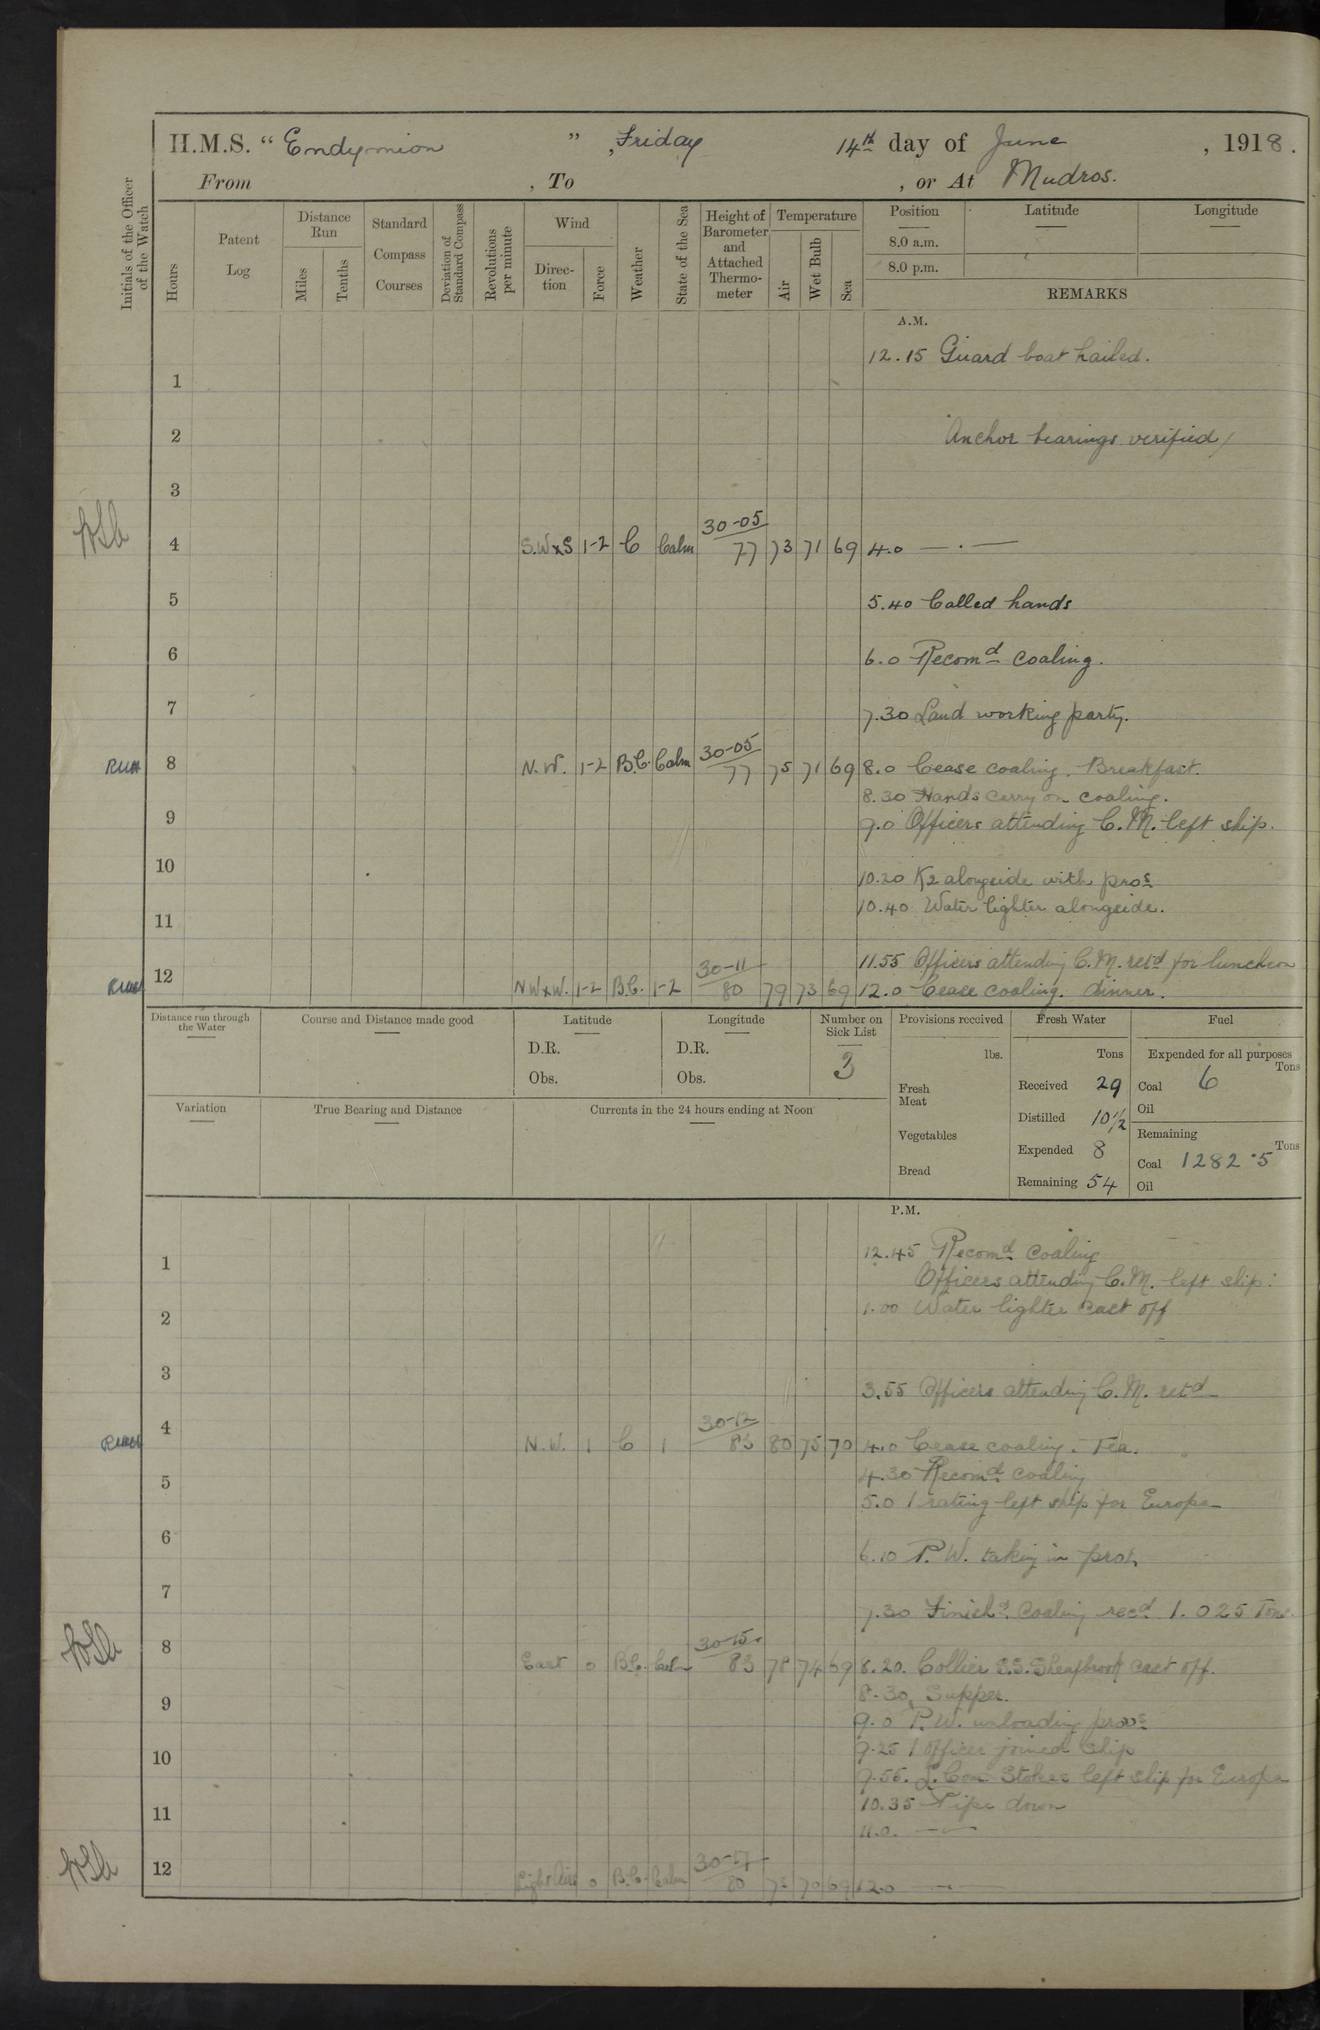 H.M.S. “Endymion”, Friday 14th day of June, 1918.
From , To , or At Mudros.
Initials of the Officer of the Watch
Hours
Patent Log
Distance Run
Miles
Tenths
Standard Compass Courses
Deviation of Standard Compass
Revolutions per minute
Wind
Direc-tion
Force
Weather
State of the Sea
Height of Barometer and Attached Thermo-meter
Temperature
Air
Wet Bulb
Sea
Position
Latitude
Longitude
8.0 a.m.
8.0 p.m.
REMARKS
A.M.
12.15 Guard boat hailed.
1
2 Anchor bearings verified
3
4 S.WxS 1-2 C Calm 30-05 77 73 71 69 4.0 — . —
5 5.40 Called hands
6 6.0 Recomd coaling.
7 7.30 Land working party.
8 N.W. 1-2 B.C. Calm 30-05 77 75 71 69 8.0 Cease coaling. Breakfast.
8.30 Hands carry on coaling.
9 9.0 Officers attending C.M. left ship.
10 10.20 K2 alongside with pros
10.40 Water lighter alongside.
11
11.55 Officers attending C.M. retd for luncheon
12 NWxW. 1-2 B.C. 1-2 30-11 80 79 73 69 12.0 Cease coaling. dinner.
Distance run through the Water
Course and Distance made good
Latitude
D.R.
Obs.
Longitude
D.R.
Obs.
Number on Sick List
3
Provisions received
lbs.
Fresh Meat
Vegetables
Bread
Fresh Water
Tons
Received 29
Distilled 10 1/2
Expended 8
Remaining 54
Fuel
Expended for all purposes
Tons
Coal 6
Oil
Remaining
Tons
Coal 1282.5
Oil
Variation
True Bearing and Distance
Currents in the 24 hours ending at Noon
P.M.
12.45 Recomd coaling
1 Officers attending C.M. left ship.
2 1.00 Water lighter cast off
3 3.55 Officers attending C.M. retd
4 N.W. 1 C 1 30-12 83 80 75 70 4.0 Cease coaling. Tea.
4.30 Recomd coaling
5 5.0 1 rating left ship for Europa
6 6.10 P.W. taking in pros
7 7.30 Finishd coaling recd 1.025 Tons.
8 East 0 B.C. Calm 30-15 83 78 74 69 8.20. Collier S.S. Sheafbrook cast off.
8.30 Supper.
9 9.0 P.W. unloading provs
9.25 1 officer joined ship
10 9.56. Stokes left ship for Europa
10.35 Pipe down
11 11.0. —
12 Light Airs 0 B.C. Calm 80 70 69 12.0 —